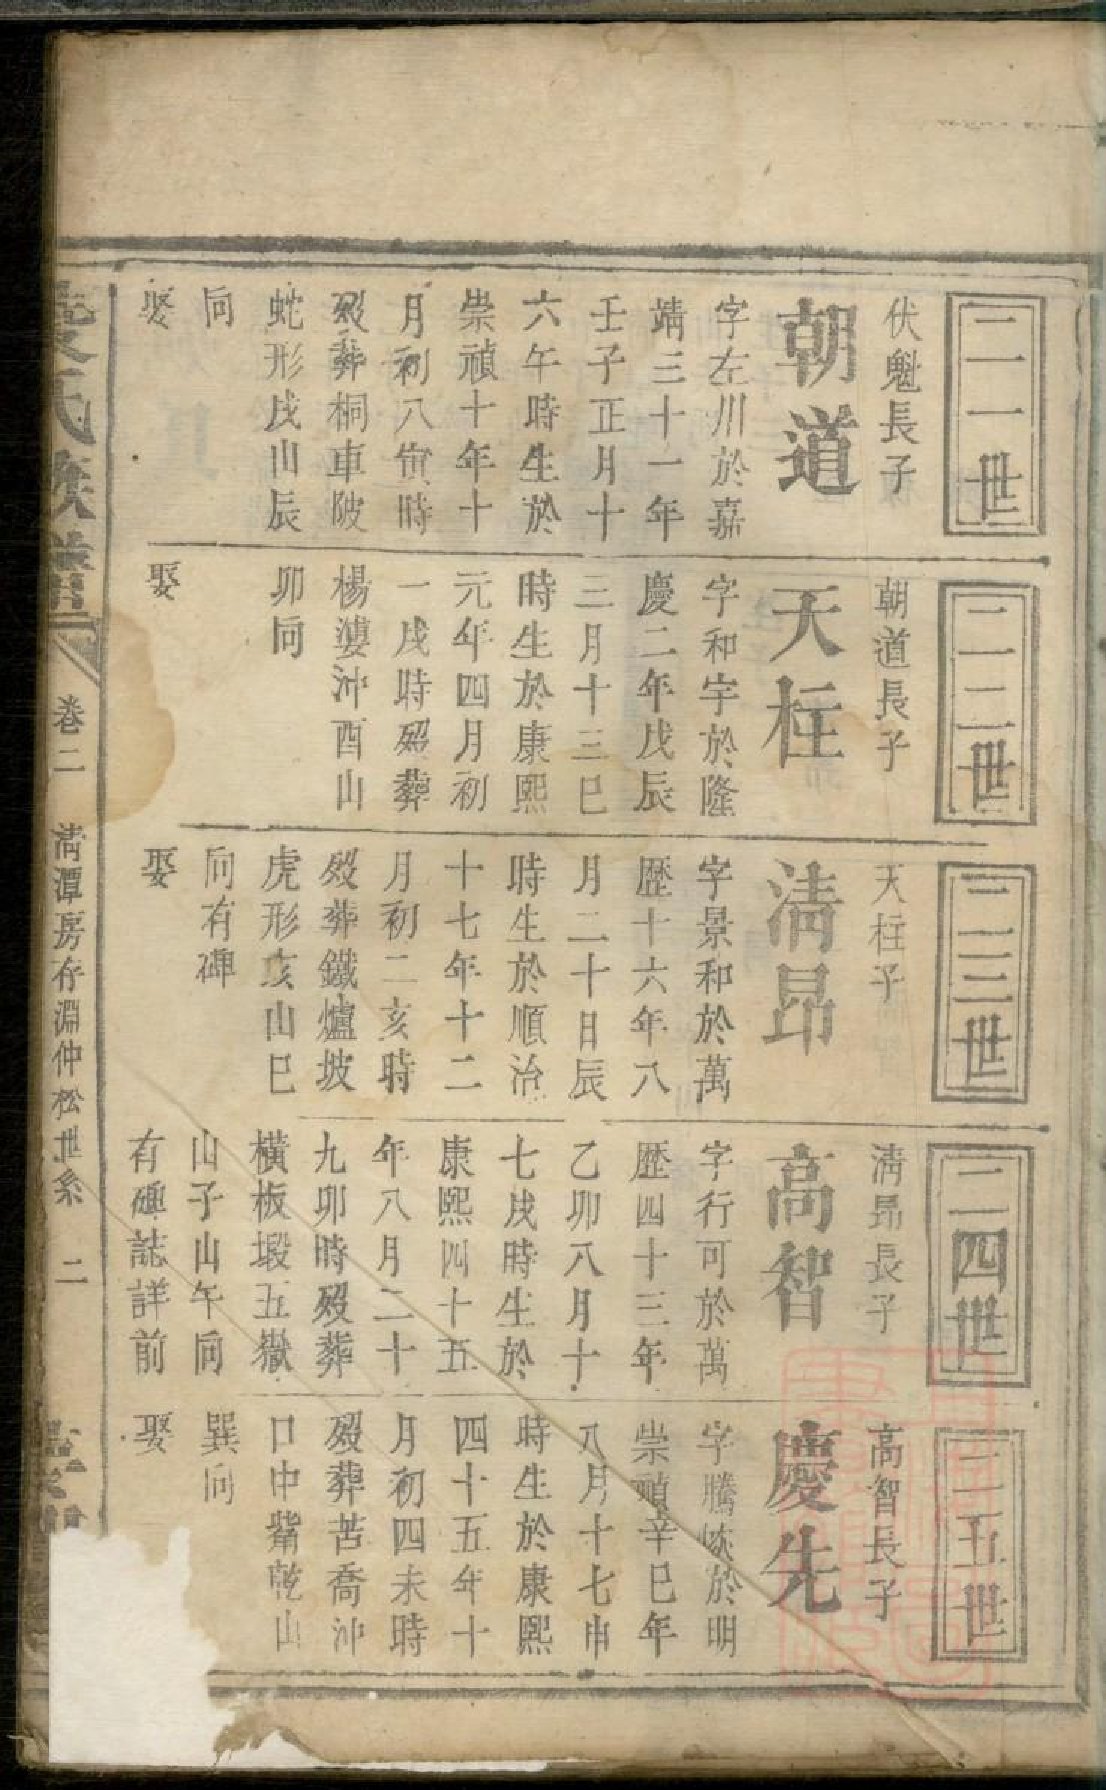 二一世
伏魁長子
朝道
字左川於嘉
靖三十一年
壬子正月十
六午時生於
崇禎十年十
月初八寅時
歿葬桐車陂
蛇形戌山辰
向
娶
二二世
朝道長子
天柱
字和宇於隆
慶二年戊辰
三月十三巳
時生於康熙
元年四月初
一戌時歿葬
楊漊沖酉山
卯向
娶
二三世
天柱子
清昂
字景和於萬
歷十六年八
月二十日辰
時生於順治
十七年十二
月初二亥時
歿葬鐵爐坡
虎形亥山巳
向有碑
娶
二四世
清昻長子
高智
字行可於萬
歷四十三年
乙卯八月十
七戌時生於
康熙四十五
年八月二十
九卯時歿葬
橫板塅五嶽
山子山午向
有碑誌詳前
二五世
高智長子
慶先
字騰於明
崇禎辛巳年
八月十七申
時生於康熙
四十五年十
月初四未時
歿葬苦喬沖
口中觜乾山
巽向
娶
氏族譜
卷二
清潭房存淵仲松世系
二